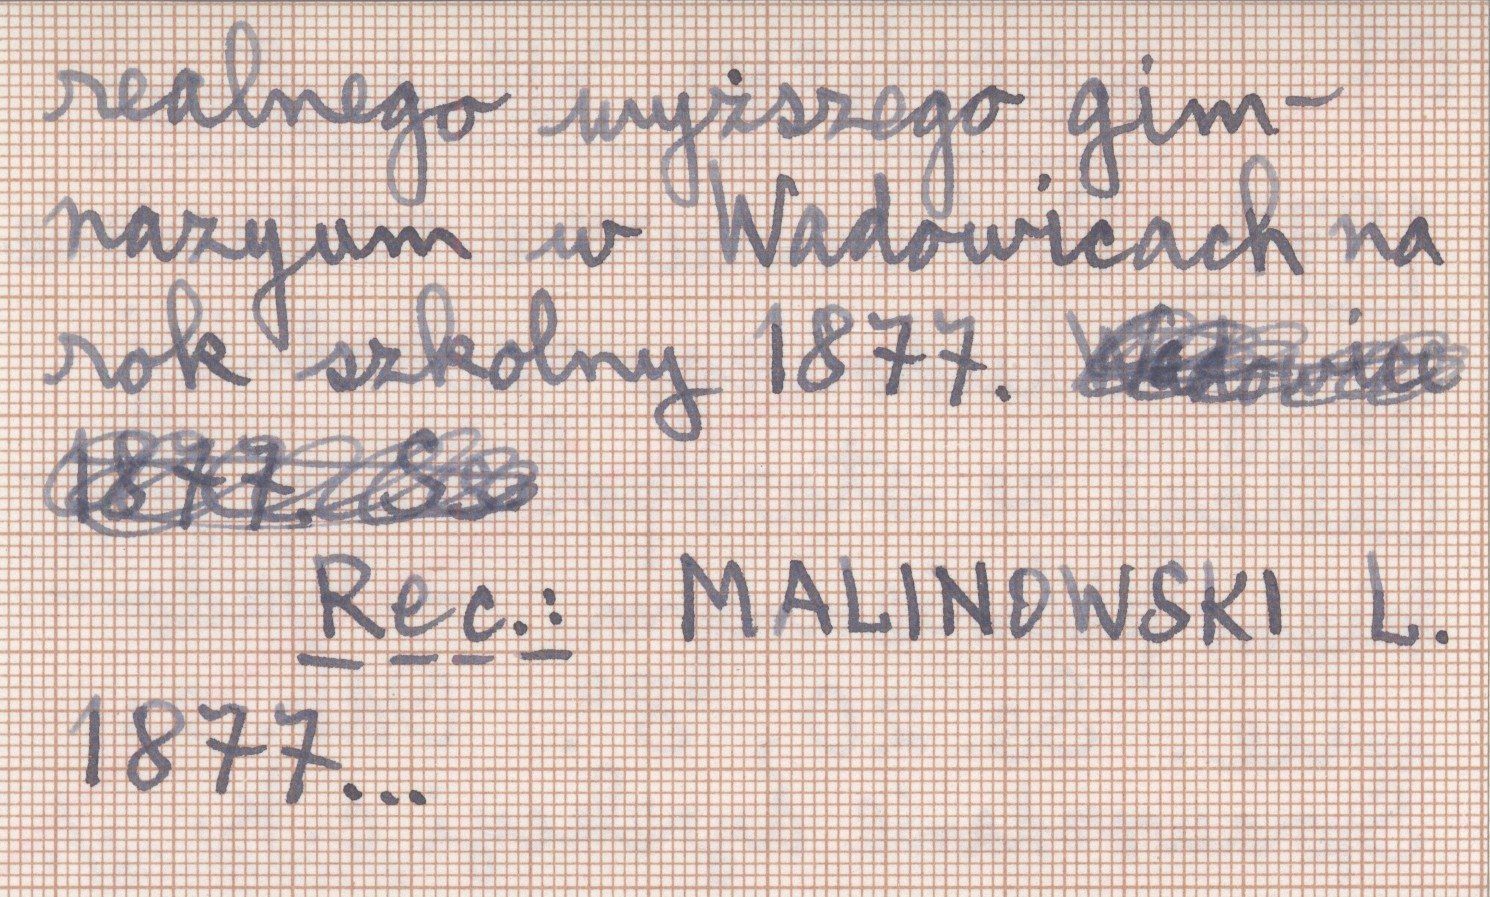 realnego wyższego gim-
nazyum w Wadowicach na
rok szkolny 1877. Wadowice
1877. S.
Rec.: MALINOWSKI L.
1877...